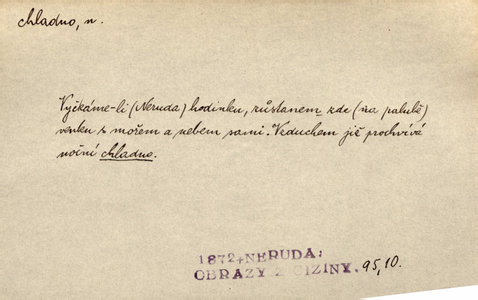 chladno, n.
Vyčkáme-li (Neruda) hodinku, zůstanem zde (na palubě)
venku s mořem a nebem sami. Vzduchem již prochvívá
noční chladno.
1872, NERUDA:
OBRAZY Z CIZINY. 95,10.